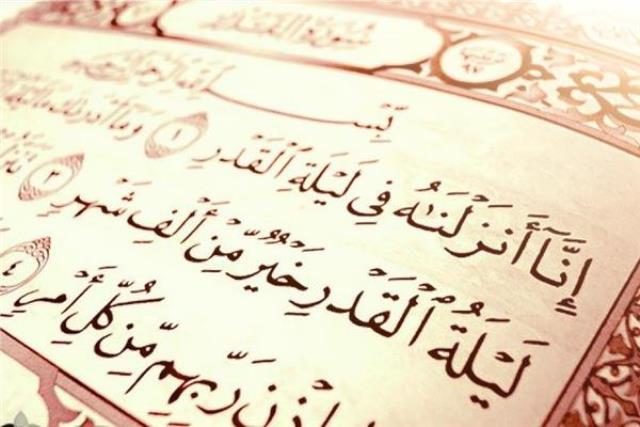 سورة القدر
بسم الله الرحمن الرحيم
إِنَّآ أَنزَلْنَٰهُ فِى لَيْلَةِ ٱلْقَدْرِ ١ وَمَآ أَدْرَىٰكَ مَا
لَيْلَةُ ٱلْقَدْرِ خَيْرٌ مِّنْ أَلْفِ شَهْرٍ ٣
رَبِّهِم مِّن كُلِّ أَمْرٍ ٤